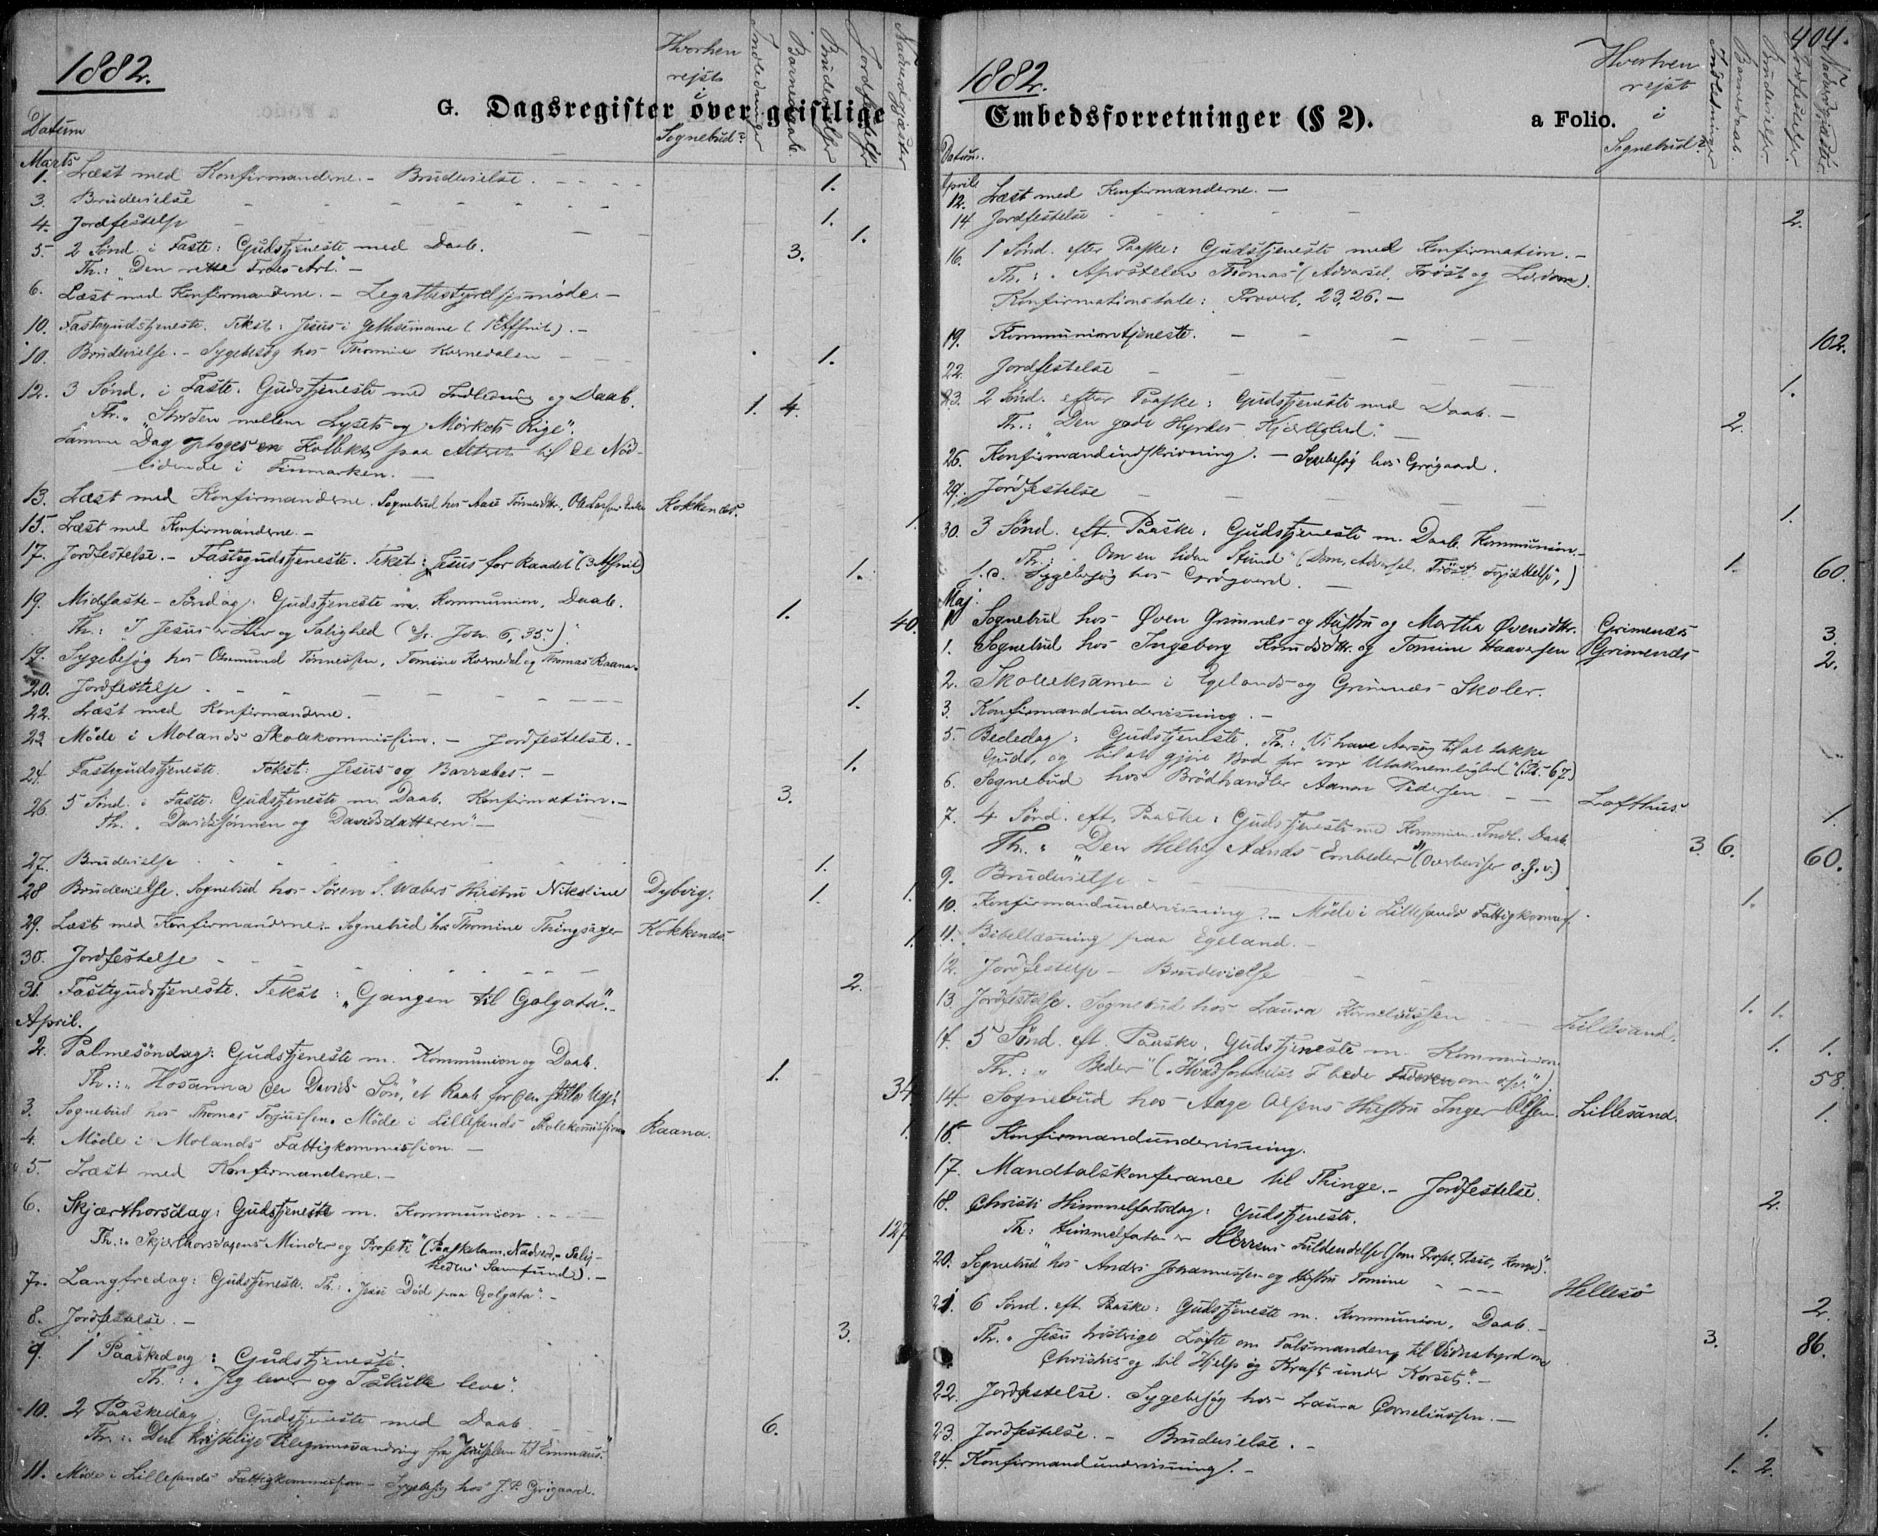 1882.
G. Dagsregister over geistlige
Datum
Hvorhen
rejst
i
Sognebud?
Indledninger
Barnedaab.
Brudevielser
Jordfæstelser
Nadverdgjæster
Marts
1. Læst med Konfirmanderne. - Brudevielse. 1.
3. Brudevielse 1.
4. Jordfestelse 1.
5. 2 Sønd. i Faste: Gudstjeneste med Daab. 3.
Th.: "Den rette Troes Art." -
6. Læst med Konfirmanderne. - Legatbestyrelsesmøde. -
10. Fastegudstjeneste. Tekst: Jesus i Gethsemane (1 Afsnit). -
10. Brudevielse. - Sygebesøg hos Thomine Kornedalen 1.
12. 3 Sønd. i Faste. Gudstjeneste med Indledning og Daab. 1. 4.
Th. "Striden mellem Lysets og Mørkets Rige".
Samme Dag optoges en Kollekt paa Altret til de Nød-
lidende i Finmarken.
13. Læst med Konfirmanderne. Sognebud hos Aase Kokkenæs. 1.
15. Læst med Konfirmanderne. -
17. Jordfestelse. - Fastegudstjeneste. Tekst: Jesus for Raadet (3 Afsnit) 1.
19. Midfaste-Søndag: Gudstjeneste m. Kommunion, Daab. 1. 40.
Th.: I Jesus er Liv og Salighed (Joh. 6, 35.)
19. Sygebesøg hos Osmund Tønnessen, Tomine Kornedal og Thomas Raana.
20. Jordfestelse 1.
22. Læst med Konfirmanderne.
23 Møde i Molands Skolekommission. - Jordfestelse. 1.
24. Fastegudstjeneste. Tekst: Jesus og Barrabas. -
26. 5 Sønd. i Faste: Gudstjeneste m. Daab. Konfirmation. - 3.
Th. "Davidssønnen og Davidsdatteren" -
27. Brudevielse 1.
28 Brudevielse. Sognebud hos Søren S. Wabers Hustru Nikoline Dybvig. 1. 1.
29. Læst med Konfirmanderne. Sognebud hos Thomine Thingsager Kokkenæs. 1.
30. Jordfestelse 2.
31. Fastegudstjeneste. Tekst: "Gangen til Golgata". -
April.
2. Palmesøndag: Gudstjeneste m. Kommunion og Daab. 1. 34
Th.: "Hosanna den Davids Søn", et Raab for den
3. Sognebud hos Thomas Torjussen. Møde i Lillesands Skolekommission Raana. 1.
4. Møde i Molands Fattigkommission. -
5. Læst med Konfirmanderne. -
6. Skjærthorsdag: Gudstjeneste m. Kommunion. 127
Th.: "Skjærthorsdagens Minder og Profeti" (Paaskelam, Nadverd,
Samfund). -
7. Langfredag: Gudstjeneste. Th.: "Jesu Død paa Golgata". -
8. Jordfestelse. - 3.
9. 1 Paaskedag: Gudstjeneste.
Th.: "Jeg lever og I skulle leve".
10. 2 Paaskedag: Gudstjeneste med Daab 6.
Th.: Den kristelige Pilegrimsvandring fra Jerusalem til Emmaus."
11. Møde i Lillesands Fattigkommission - Sygebesøg hos J. P. Grøgaard.
1882.
404.
Embedsforretninger (§ 2).
a Folio.
Datum.
Hvorhen
rejst
i
Sognebud?
Indledninger
Barnedaab.
Brudevielser.
Jordfestelser.
Nadverdgjæster.
April
12. Læst med Konfirmanderne. -
14. Jordfestelse 2.
16. 1 Sønd. efter Paaske: Gudstjeneste med Konfirmation. -
Th.: "Apostelen Thomas" (Advarsel, Trøst og Lærdom).
Konfirmationstale: Proverb. 23, 26. -
19. Kommuniontjeneste. 102.
22. Jordfestelse 1.
23. 2 Sønd. efter Paaske: Gudstjeneste med Daab. - 2.
Th.: "Den gode Hyrdes Kjærlighed."
26. Konfirmandindskrivning. - Sygebesøg hos Grøgaard.
29. Jordfestelse 1.
30. 3 Sønd. eft. Paaske: Gudstjeneste m. Daab. Kommunion. - 1. 60.
Th.: "Om en liden Stund" (Dom, Advarsel, Trøst,
s. D. Sygebesøg hos Grøgaard. -
Maj.
1. Sognebud hos Øven Grimnæs og Hustru og Martha Øvensdtr. Grimenæs 3.
1. Sognebud hos Ingeborg Knudsdtr. og Tomine Haaversen Grimenæs 2.
2. Skoleeksamen i Egelands og Grimnæs Skoler.
3. Konfirmandundervisning. -
5. Bededag: Gudstjeneste. Th.: "Vi have Aarsag til at takke
Gud, og til at gjøre Bod for vor Utaknemlighed" (Ps. 67)
6. Sognebud hos Brødhandler Aanon Pedersen Lofthus. 1.
7. 4 Sønd. eft. Paaske: Gudstjeneste med Kommun. Indl. Daab 3. 6. 60.
Th.: "Den Hellig Aands Embeder" (Overbeviser o.s.v.)
9. Brudevielse 1.
10. Konfirmandundervisning. - Møde i Lillesands Fattigkommis.
11. Bibellæsning paa Egeland. -
12. Jordfestelse - Brudevielse 1. 1.
13. Jordfestelse. Sognebud hos Laura Korneliussen Lillesand. 1. 1.
14. 5 Sønd. eft. Paaske. Gudstjeneste m. Kommunion 58.
Th.: "Beder" ("Hvadsomhelst I bede Faderen om osv.").
14. Sognebud hos Aage Olsens Hustru Inger Olsen. Lillesand. 1.
15. Konfirmandundervisning.
17. Mandtalskonferance til Thinge. - Jordfestelse. 2.
18. Christi Himmelfartsdag: Gudstjeneste.
Th: Himmelfarten er HErrens Fuldendelse (som Profet, Præst, Konge)".
20. Sognebud hos Anders Johannessen og Hustru Tomine Hellesø 2.
21. 6 Sønd. eft. Paaske: Gudstjeneste m. Kommunion, Daab. - 3. 86.
Th. "Jesu trøstrige Løfte om Talsmanden, til Vidnesbyrd om
Christus og til Hjelp og Kraft under Korset". -
22. Jordfestelse. Sygebesøg hos Laura Corneliussen. - 1.
23. Jordfestelse. - Brudevielse. - 1. 2.
24. Konfirmandundervisning. -